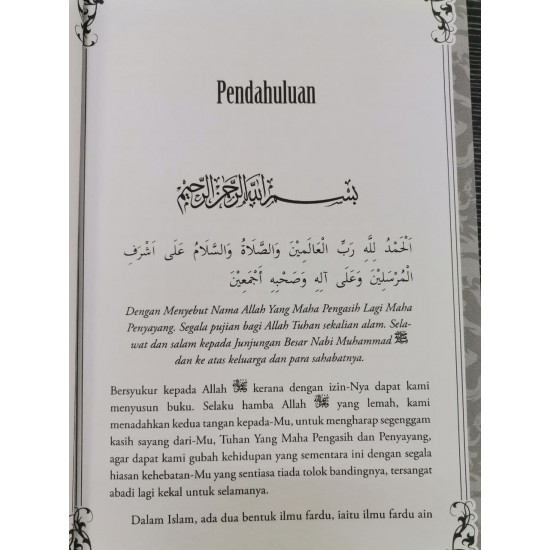 Pendahuluan
بسم الله الرحمن الرحيم
اَلْحَمْدُ لِلّٰهِ رَبِّ الْعَالَمِيْنَ وَالصَّلَاةُ وَالسَّلَامُ عَلَى اَشْرَفِ
الْمُرْسَلِيْنَ وَعَلَى آلِهِ وَصَحْبِهِ أَجْمَعِيْنَ
Dengan Menyebut Nama Allah Yang Maha Pengasih Lagi Maha
Penyayang. Segala pujian bagi Allah Tuhan sekalian alam. Sela-
wat dan salam kepada Junjungan Besar Nabi Muhammad ﷺ
dan ke atas keluarga dan para sahabatnya.
Bersyukur kepada Allah ﷻ kerana dengan izin-Nya dapat kami
menyusun buku. Selaku hamba Allah ﷻ yang lemah, kami
menadahkan kedua tangan kepada-Mu, untuk mengharap segenggam
kasih sayang dari-Mu, Tuhan Yang Maha Pengasih dan Penyayang,
agar dapat kami gubah kehidupan yang sementara ini dengan segala
hiasan kehebatan-Mu yang sentiasa tiada tolok bandingnya, tersangat
abadi lagi kekal untuk selamanya.
Dalam Islam, ada dua bentuk ilmu fardu, iaitu ilmu fardu ain